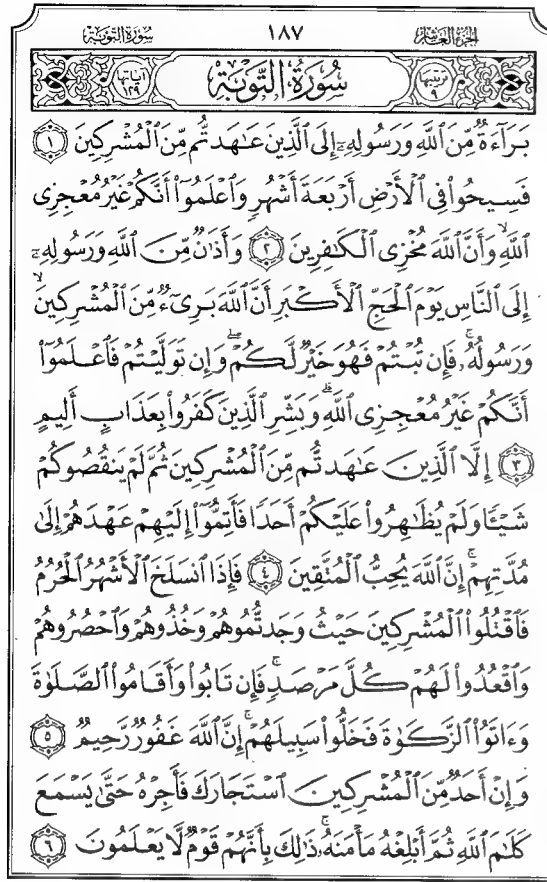 الجزء العاشر ١٨٧ سورة التوبة
ترتيبها ٩ سُورَةُ التَّوْبَةِ آياتها ١٢٩
بَرَآءَةٌ مِّنَ ٱللَّهِ وَرَسُولِهِۦٓ إِلَى ٱلَّذِينَ عَـٰهَدتُّم مِّنَ ٱلْمُشْرِكِينَ ١
فَسِيحُوا۟ فِى ٱلْأَرْضِ أَرْبَعَةَ أَشْهُرٍ وَٱعْلَمُوٓا۟ أَنَّكُمْ غَيْرُ مُعْجِزِى
ٱللَّهِ ۙ وَأَنَّ ٱللَّهَ مُخْزِى ٱلْكَـٰفِرِينَ ٢ وَأَذَٰنٌ مِّنَ ٱللَّهِ وَرَسُولِهِۦٓ
إِلَى ٱلنَّاسِ يَوْمَ ٱلْحَجِّ ٱلْأَكْبَرِ أَنَّ ٱللَّهَ بَرِىٓءٌ مِّنَ ٱلْمُشْرِكِينَ ۙ
وَرَسُولُهُۥ ۚ فَإِن تُبْتُمْ فَهُوَ خَيْرٌ لَّكُمْ ۖ وَإِن تَوَلَّيْتُمْ فَٱعْلَمُوٓا۟
أَنَّكُمْ غَيْرُ مُعْجِزِى ٱللَّهِ ۗ وَبَشِّرِ ٱلَّذِينَ كَفَرُوا۟ بِعَذَابٍ أَلِيمٍ
٣ إِلَّا ٱلَّذِينَ عَـٰهَدتُّم مِّنَ ٱلْمُشْرِكِينَ ثُمَّ لَمْ يَنقُصُوكُمْ
شَيْـًٔا وَلَمْ يُظَـٰهِرُوا۟ عَلَيْكُمْ أَحَدًا فَأَتِمُّوٓا۟ إِلَيْهِمْ عَهْدَهُمْ إِلَىٰ
مُدَّتِهِمْ ۚ إِنَّ ٱللَّهَ يُحِبُّ ٱلْمُتَّقِينَ ٤ فَإِذَا ٱنسَلَخَ ٱلْأَشْهُرُ ٱلْحُرُمُ
فَٱقْتُلُوا۟ ٱلْمُشْرِكِينَ حَيْثُ وَجَدتُّمُوهُمْ وَخُذُوهُمْ وَٱحْصُرُوهُمْ
وَٱقْعُدُوا۟ لَهُمْ كُلَّ مَرْصَدٍ ۚ فَإِن تَابُوا۟ وَأَقَامُوا۟ ٱلصَّلَوٰةَ
وَءَاتَوُا۟ ٱلزَّكَوٰةَ فَخَلُّوا۟ سَبِيلَهُمْ ۚ إِنَّ ٱللَّهَ غَفُورٌ رَّحِيمٌ ٥
وَإِنْ أَحَدٌ مِّنَ ٱلْمُشْرِكِينَ ٱسْتَجَارَكَ فَأَجِرْهُ حَتَّىٰ يَسْمَعَ
كَلَـٰمَ ٱللَّهِ ثُمَّ أَبْلِغْهُ مَأْمَنَهُۥ ۚ ذَٰلِكَ بِأَنَّهُمْ قَوْمٌ لَّا يَعْلَمُونَ ٦